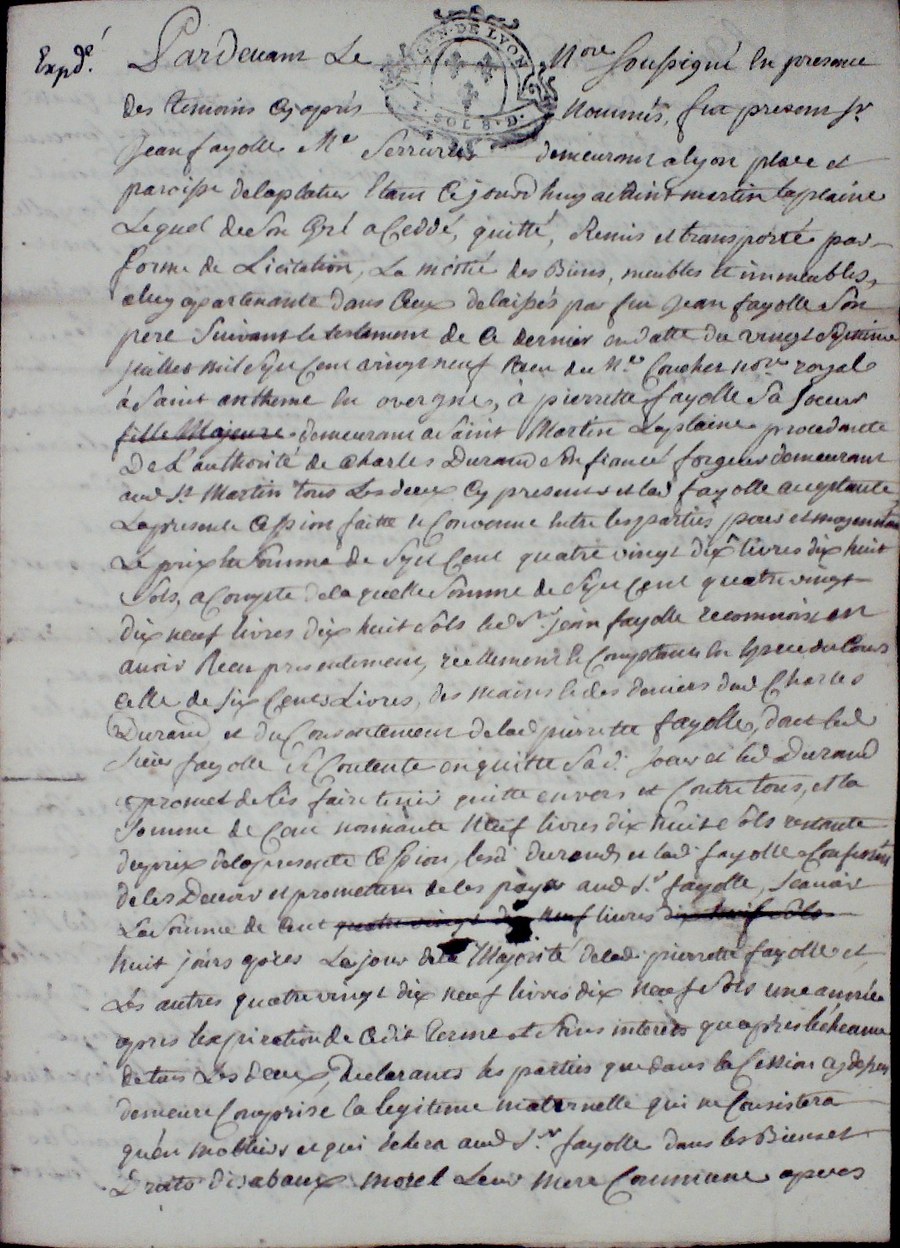 Expdé. Pardevant Le Nore soussigné En presence
GEN. DE LYON
SOL 8. D.
des temoins Cy après Nommés, fut present Sr
Jean fayolle Me Serrurier demeurant a lyon place et
paroisse de la platiere Etant Cejourd'huy a Saint martin la plaine
Lequel de Son Gré a Ceddé, quitté, Remis et transporté par
forme de Licitation, La moitié des Biens, meubles et immeubles,
a luy apartenante dans Ceux delaissés par feu Jean fayolle Son
pere Suivant le testament de Ce dernier en datte du vingt Septieme
juillet mil Sept Cent vingt neuf Recu du Me Coucher nore royal
à Saint antheme En overgne, à pierrette fayolle Sa Soeur
fille Majeure demeurant a Saint Martin La plaine procedante
De L'authorité de Charles Durand Son fiancé forgeur demeurant
aud St Martin tous Les deux Cy presents et lad fayolle aceptante
La presente Cession faitte et Convenue Entre les parties pour et moyennant
Le prix et Somme de Sept Cent quatre vingt dix livres dix huit
Sols, a Compte de la quelle Somme de Sept Cent quatre vingt
dix neuf livres dix huit Sols led Sr jean fayolle reconnoit en
avoir Recu presentement, reellement et Comptant En Espece du Cours
Celle de Six Cents Livres, des mains et des deniers dud Charles
Durand et du Consentement de lad pierrette fayolle, dont led
Sieur fayolle Se Contente en quitte Sad. Soeur et led Durand
et promet de les faire tenir quitte envers et Contre tous, et la
Somme de Cent nonnante Neuf livres dix huit Sols restante
du prix de la presente Cession, lesd. Durand et lad. fayolle Confessent
de les Devoir et promettent de les payer aud Sr. fayolle, Scavoir
La Somme de Cent quatre vingt dix neuf livres dix huit Sols
huit jours après Le jour de la Majorité de lad. pierrette fayolle et
Les autres quatre vingt dix neuf livres dix neuf Sols une année
apres lexpiration de Cedit terme et Sans interets qu'apres l'écheance
de tous Les deux, Declarants les parties que dans la Cession cy dessus
demeure Comprise la legitime maternelle qui ne Consistera
qu'en mobiliers et qui echera aud Sr. fayolle dans les Biens et
Droits d'isabeau morel Leur mere Commune apres